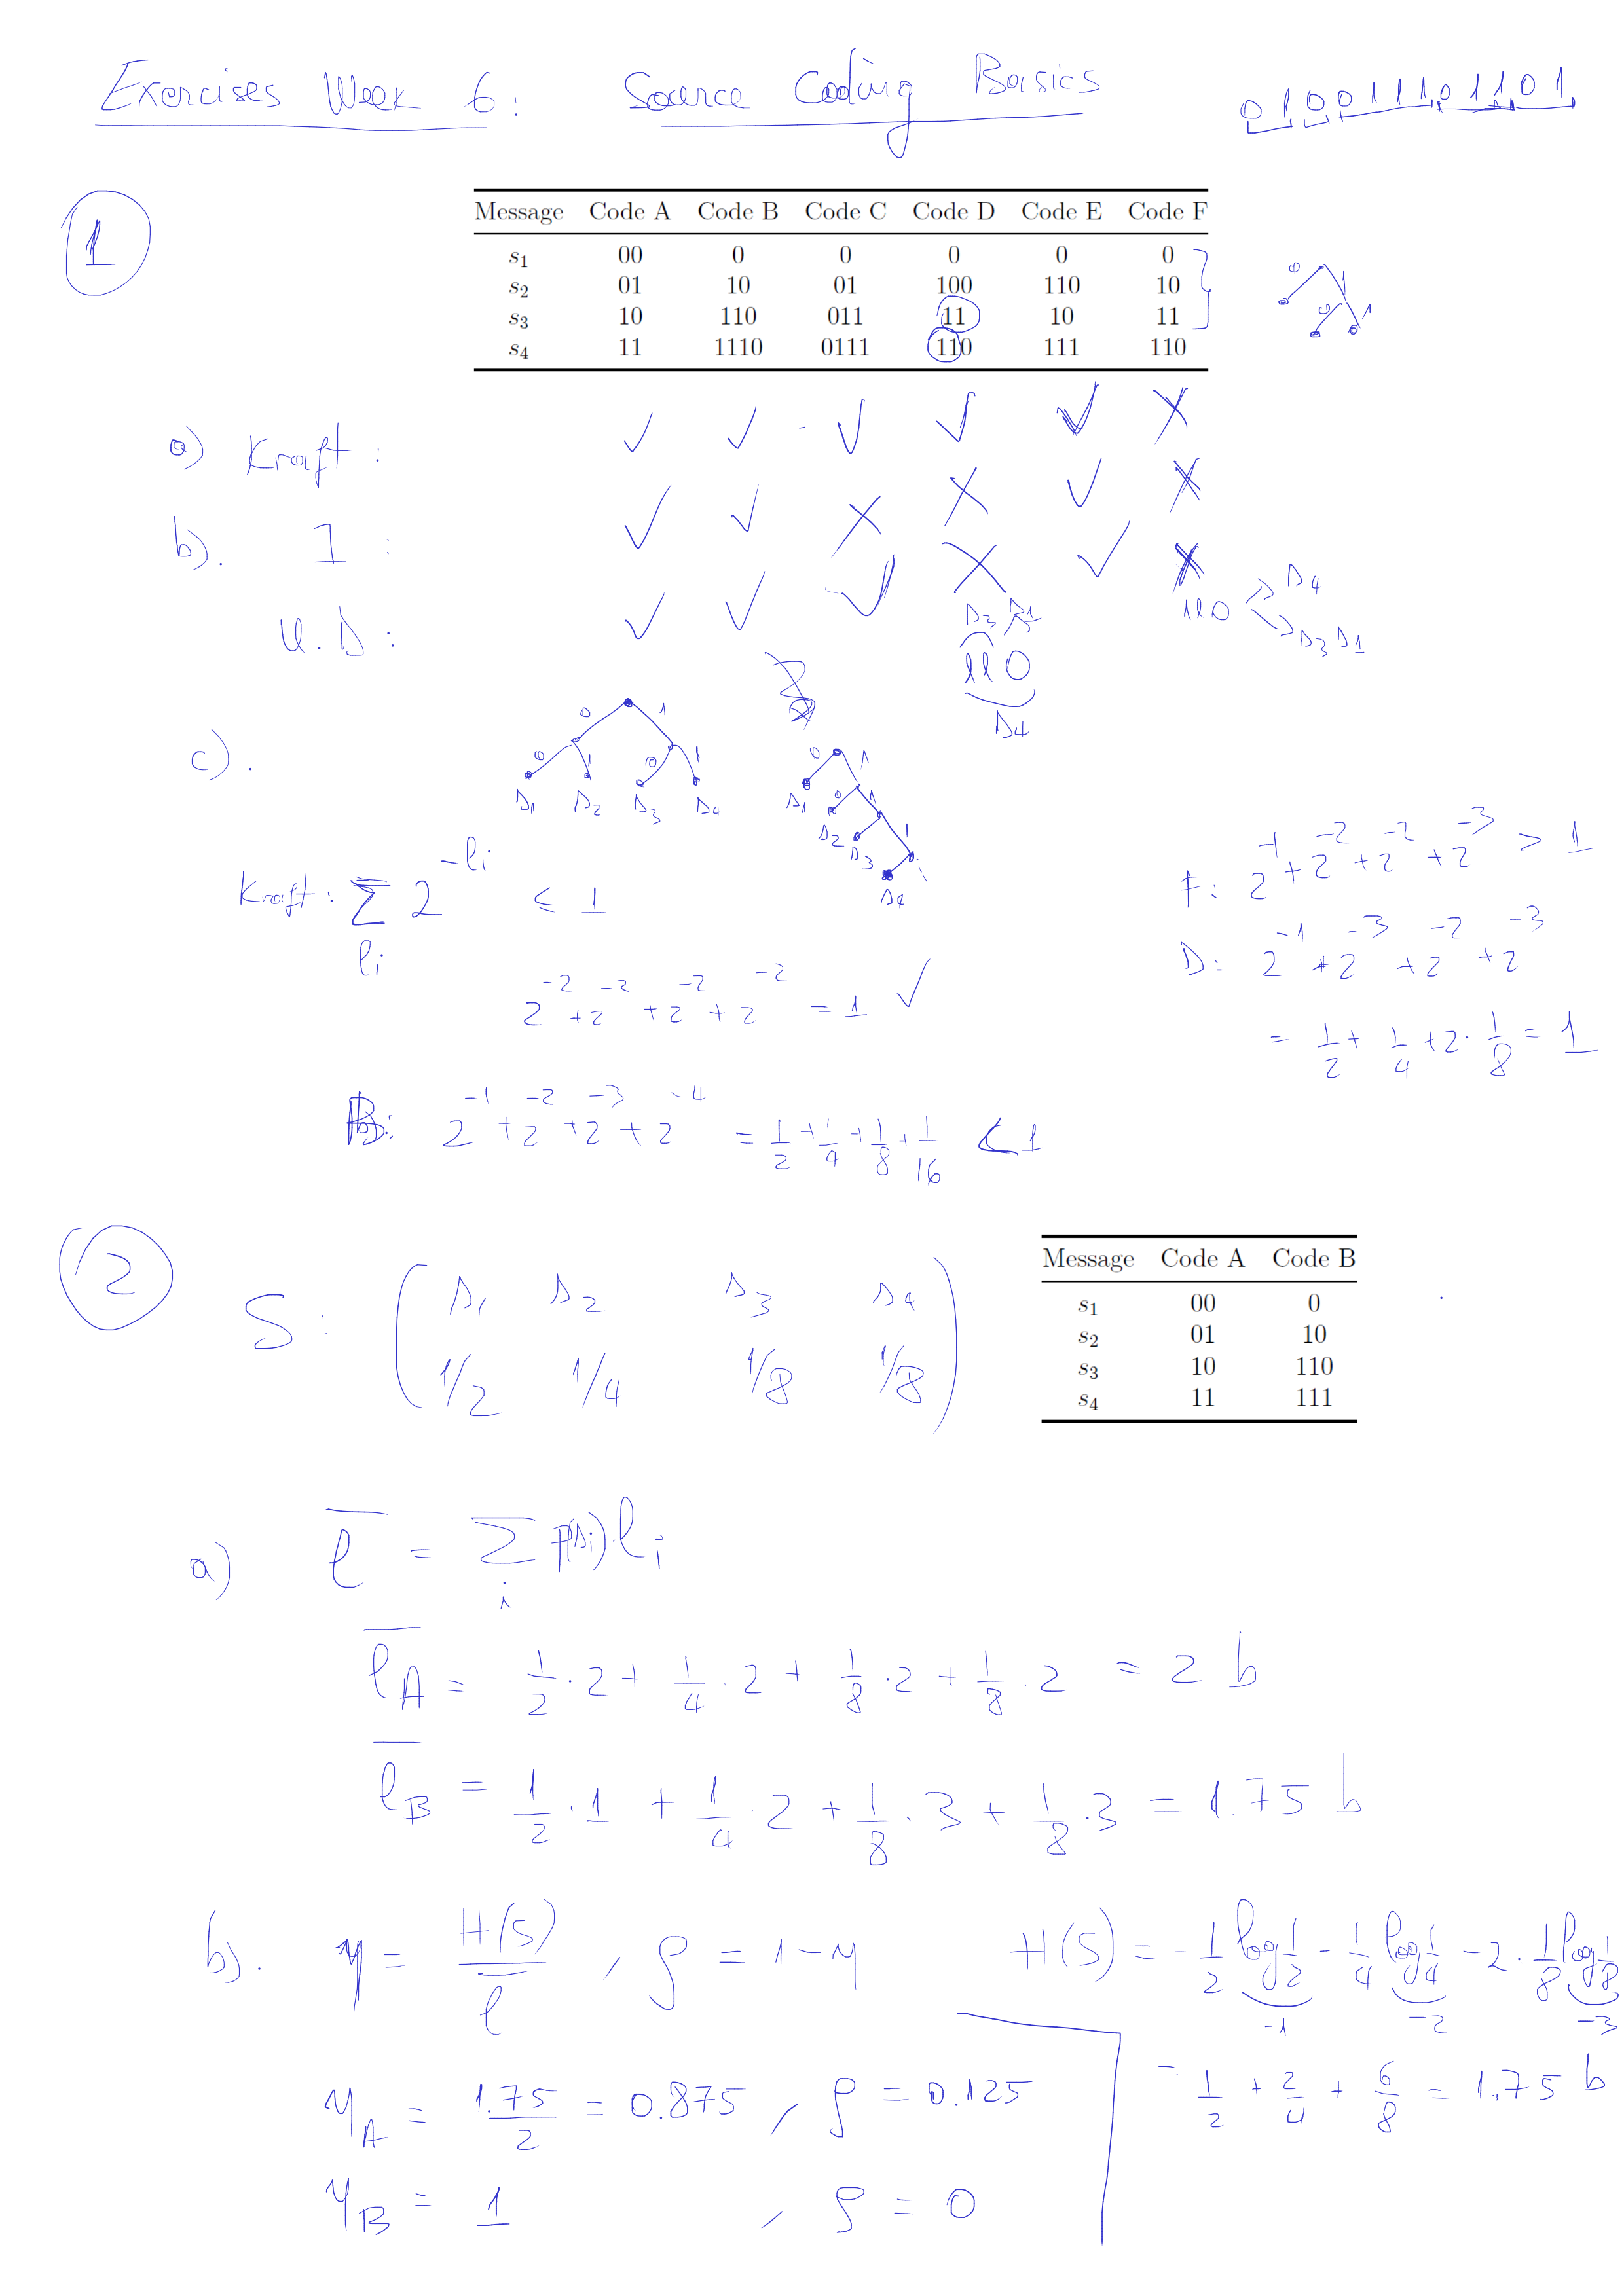 Exercises Week 6: Source Coding Basics 0100111011101
1
Message Code A Code B Code C Code D Code E Code F
s1 00 0 0 0 0 0
s2 01 10 01 100 110 10
s3 10 110 011 11 10 11
s4 11 1110 0111 110 111 110
0 1
0 1
a) Kraft: ✓ ✓ - ✓ ✓ ✓ X
b). I: ✓ ✓ X X ✓ X
U.D: ✓ ✓ ✓ X ✓ X
s3 s1
110
s4
110 → s4
→ s3 s1
c).
0 1
0 1 0 1
s1 s2 s3 s4
0 1
s1 0 1
s2 1
s3
s4
Kraft: Σ 2^-li ≤ 1
li
2^-2 + 2^-2 + 2^-2 + 2^-2 = 1 ✓
B: 2^-1 + 2^-2 + 2^-3 + 2^-4 = 1/2 + 1/4 + 1/8 + 1/16 < 1
F: 2^-1 + 2^-2 + 2^-2 + 2^-3 > 1
D: 2^-1 + 2^-3 + 2^-2 + 2^-3
= 1/2 + 1/4 + 2·1/8 = 1
2
S: ( s1 s2 s3 s4
1/2 1/4 1/8 1/8 )
Message Code A Code B
s1 00 0
s2 01 10
s3 10 110
s4 11 111
a) l̄ = Σ p(si) li
i
l̄A = 1/2·2 + 1/4·2 + 1/8·2 + 1/8·2 = 2 b
l̄B = 1/2·1 + 1/4·2 + 1/8·3 + 1/8·3 = 1.75 b
b). η = H(S)/l̄ , ρ = 1-η H(S) = -1/2 log 1/2 - 1/4 log 1/4 - 2·1/8 log 1/8
-1 -2 -3
= 1/2 + 2/4 + 6/8 = 1.75 b
ηA = 1.75/2 = 0.875 , ρ = 0.125
ηB = 1 , ρ = 0